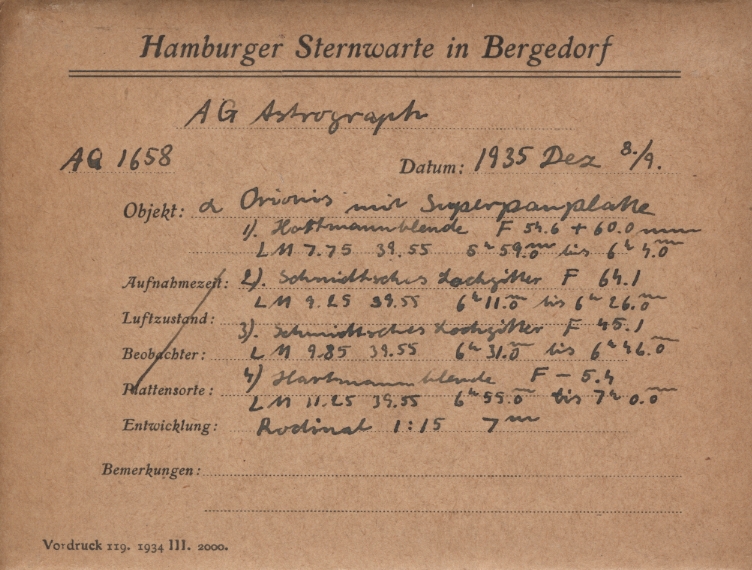 Hamburger Sternwarte in Bergedorf
AG Astrograph
AG 1658 Datum: 1935 Dez 8./9.
Objekt: α Orionis mit Superpanplatte
1). Hartmannblende F 54.6 + 60.0 mm
LM 7.75 39.55 5ʰ 59.0ᵐ bis 6ʰ 4.0ᵐ
Aufnahmezeit: 2). Schmidtsches Lochgitter F 64.1
LM 9.25 39.55 6ʰ 11.0ᵐ bis 6ʰ 26.0ᵐ
Luftzustand:
3). Schmidtsches Lochgitter F 45.1
Beobachter: LM 9.85 39.55 6ʰ 31.0ᵐ bis 6ʰ 46.0ᵐ
4) Hartmannblende F - 5.4
Plattensorte:
LM 11.25 39.55 6ʰ 55.0ᵐ bis 7ʰ 0.0ᵐ
Entwicklung: Rodinal 1:15 7ᵐ
Bemerkungen:
Vordruck 119. 1934 III. 2000.